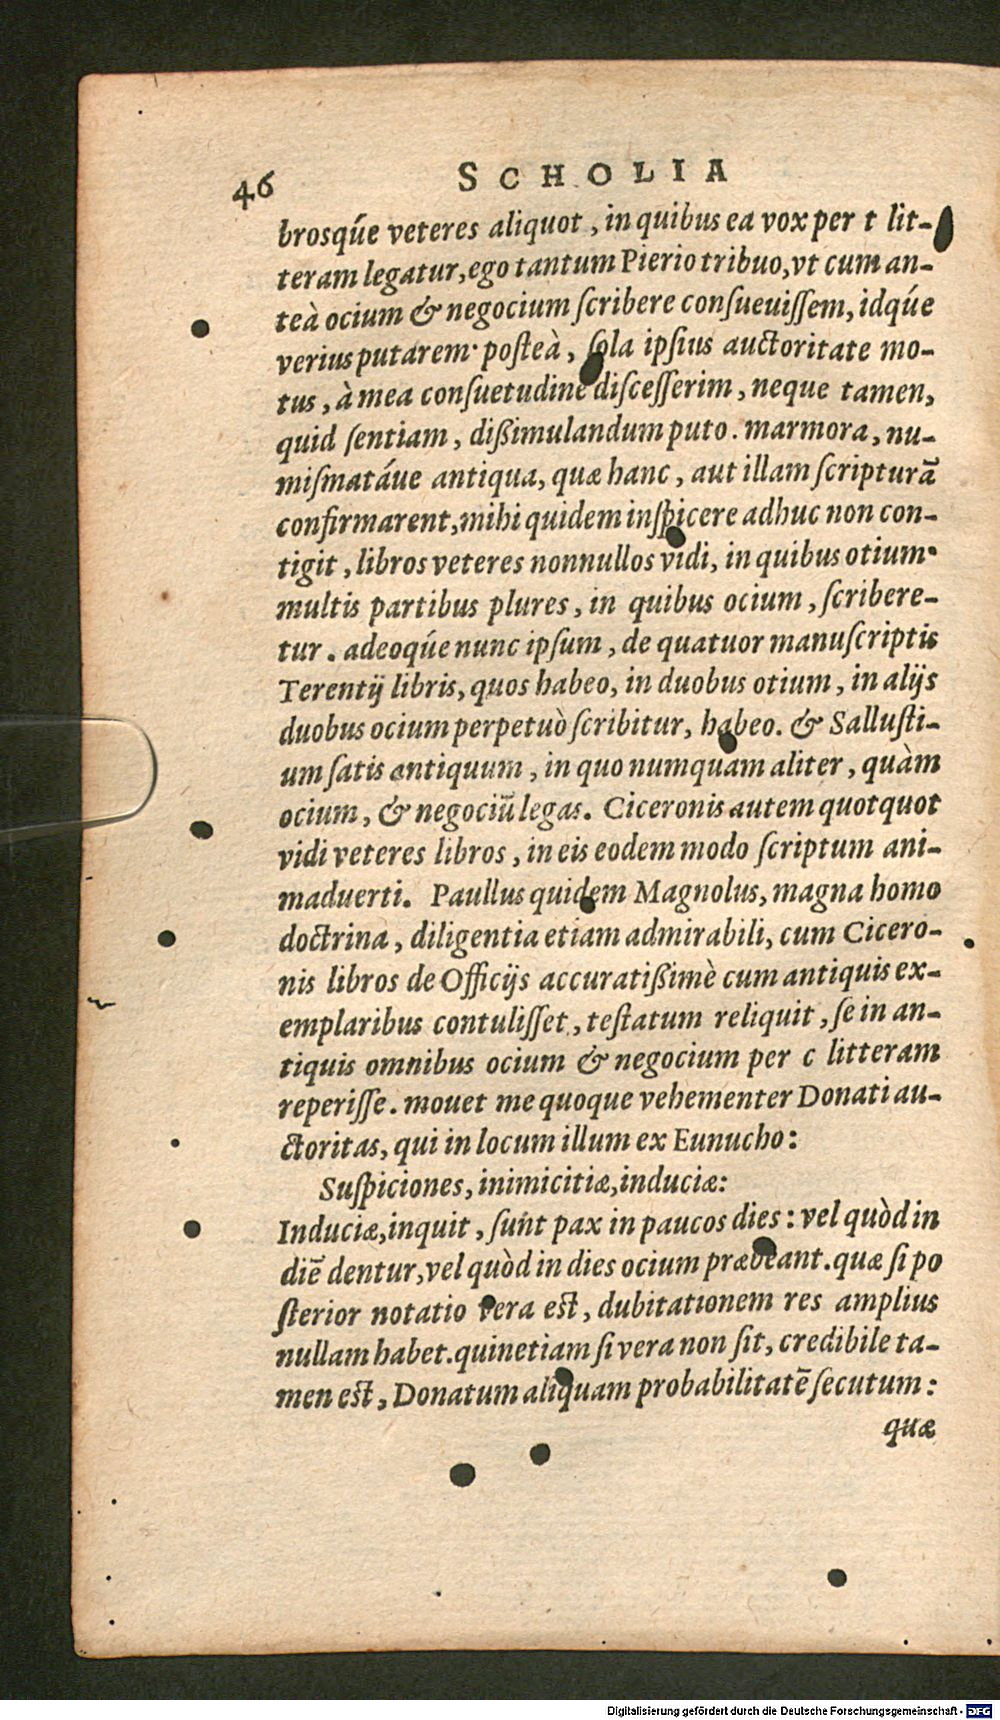 46
SCHOLIA
brosq́ue veteres aliquot, in quibus ea vox per t lit-
teram legatur, ego tantum Pierio tribuo, vt cum an-
teà ocium & negocium ſcribere conſueuiſſem, idq́ue
verius putarem· poſteà, ſola ipſius auctoritate mo-
tus, à mea conſuetudine diſceſſerim, neque tamen,
quid ſentiam, dißimulandum puto. marmora, nu-
miſmatáue antiqua, quæ hanc, aut illam ſcripturā
confirmarent, mihi quidem inſpicere adhuc non con-
tigit, libros veteres nonnullos vidi, in quibus otium·
multis partibus plures, in quibus ocium, ſcribere-
tur. adeoq́ue nunc ipſum, de quatuor manuſcriptis
Terentij libris, quos habeo, in duobus otium, in alijs
duobus ocium perpetuò ſcribitur, habeo. & Salluſti-
um ſatis antiquum, in quo numquam aliter, quàm
ocium, & negociū legas. Ciceronis autem quotquot
vidi veteres libros, in eis eodem modo ſcriptum ani-
maduerti. Paullus quidem Magnolus, magna homo
doctrina, diligentia etiam admirabili, cum Cicero-
nis libros de Officijs accuratißimè cum antiquis ex-
emplaribus contuliſſet, teſtatum reliquit, ſe in an-
tiquis omnibus ocium & negocium per c litteram
reperiſſe. mouet me quoque vehementer Donati au-
ctoritas, qui in locum illum ex Eunucho:
Suſpiciones, inimicitiæ, induciæ:
Induciæ, inquit, ſunt pax in paucos dies: vel quòd in
diē dentur, vel quòd in dies ocium præbeant. quæ ſi po
ſterior notatio vera eſt, dubitationem res amplius
nullam habet. quinetiam ſi vera non ſit, credibile ta-
men eſt, Donatum aliquam probabilitatē ſecutum:
quæ
Digitalisierung gefördert durch die Deutsche Forschungsgemeinschaft - DFG